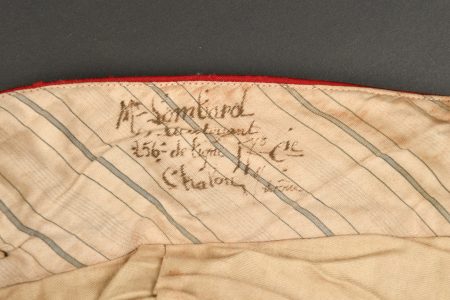 Mr Lombard
Lieutenant
256e de ligne
Cie
Chalon